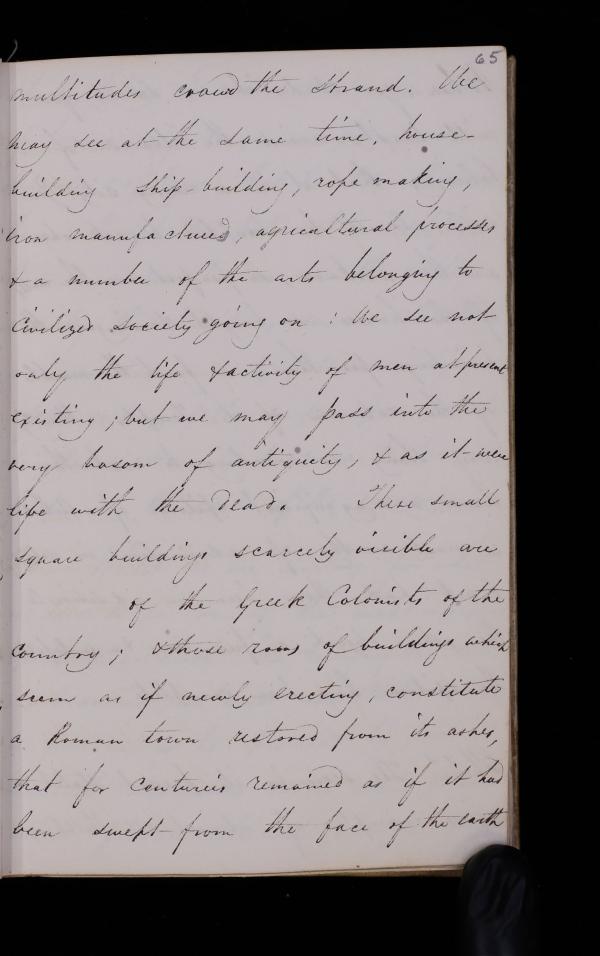 65
multitudes crowd the strand. We
may see at the same time, house-
building ship-building, rope making,
iron manufactures, agricultural processes
& a number of the arts belonging to
Civilized society going on : We see not
only the life & activity of men at present
existing ; but we may pass into the
very bosom of antiquity, & as it were
life with the dead. These small
square buildings scarcely visible are
of the Greek Colonists of the
country ; & those rows of buildings which
seem as if newly erecting, constitute
a Roman town restored from its ashes,
that for centureis remained as if it had
been swept from the face of the earth